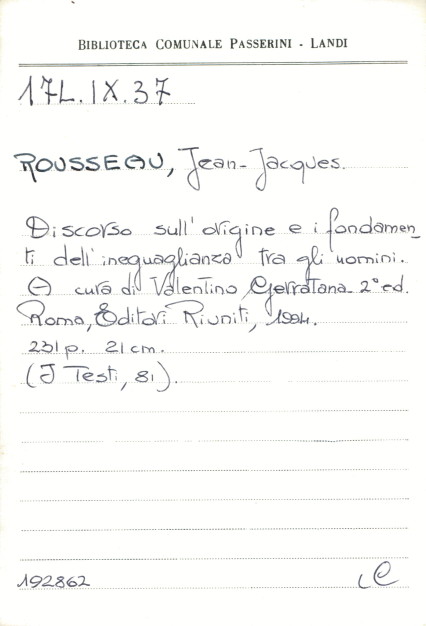 BIBLIOTECA COMUNALE PASSERINI - LANDI
17L.IX.37
ROUSSEAU, Jean-Jacques.
Discorso sull'origine e i fondamen_
ti dell'ineguaglianza tra gli uomini.
A cura di Valentino Gerratana 2ª ed.
Roma, Editori Riuniti, 1994.
231 p. 21 cm.
(I Testi, 81).
192862